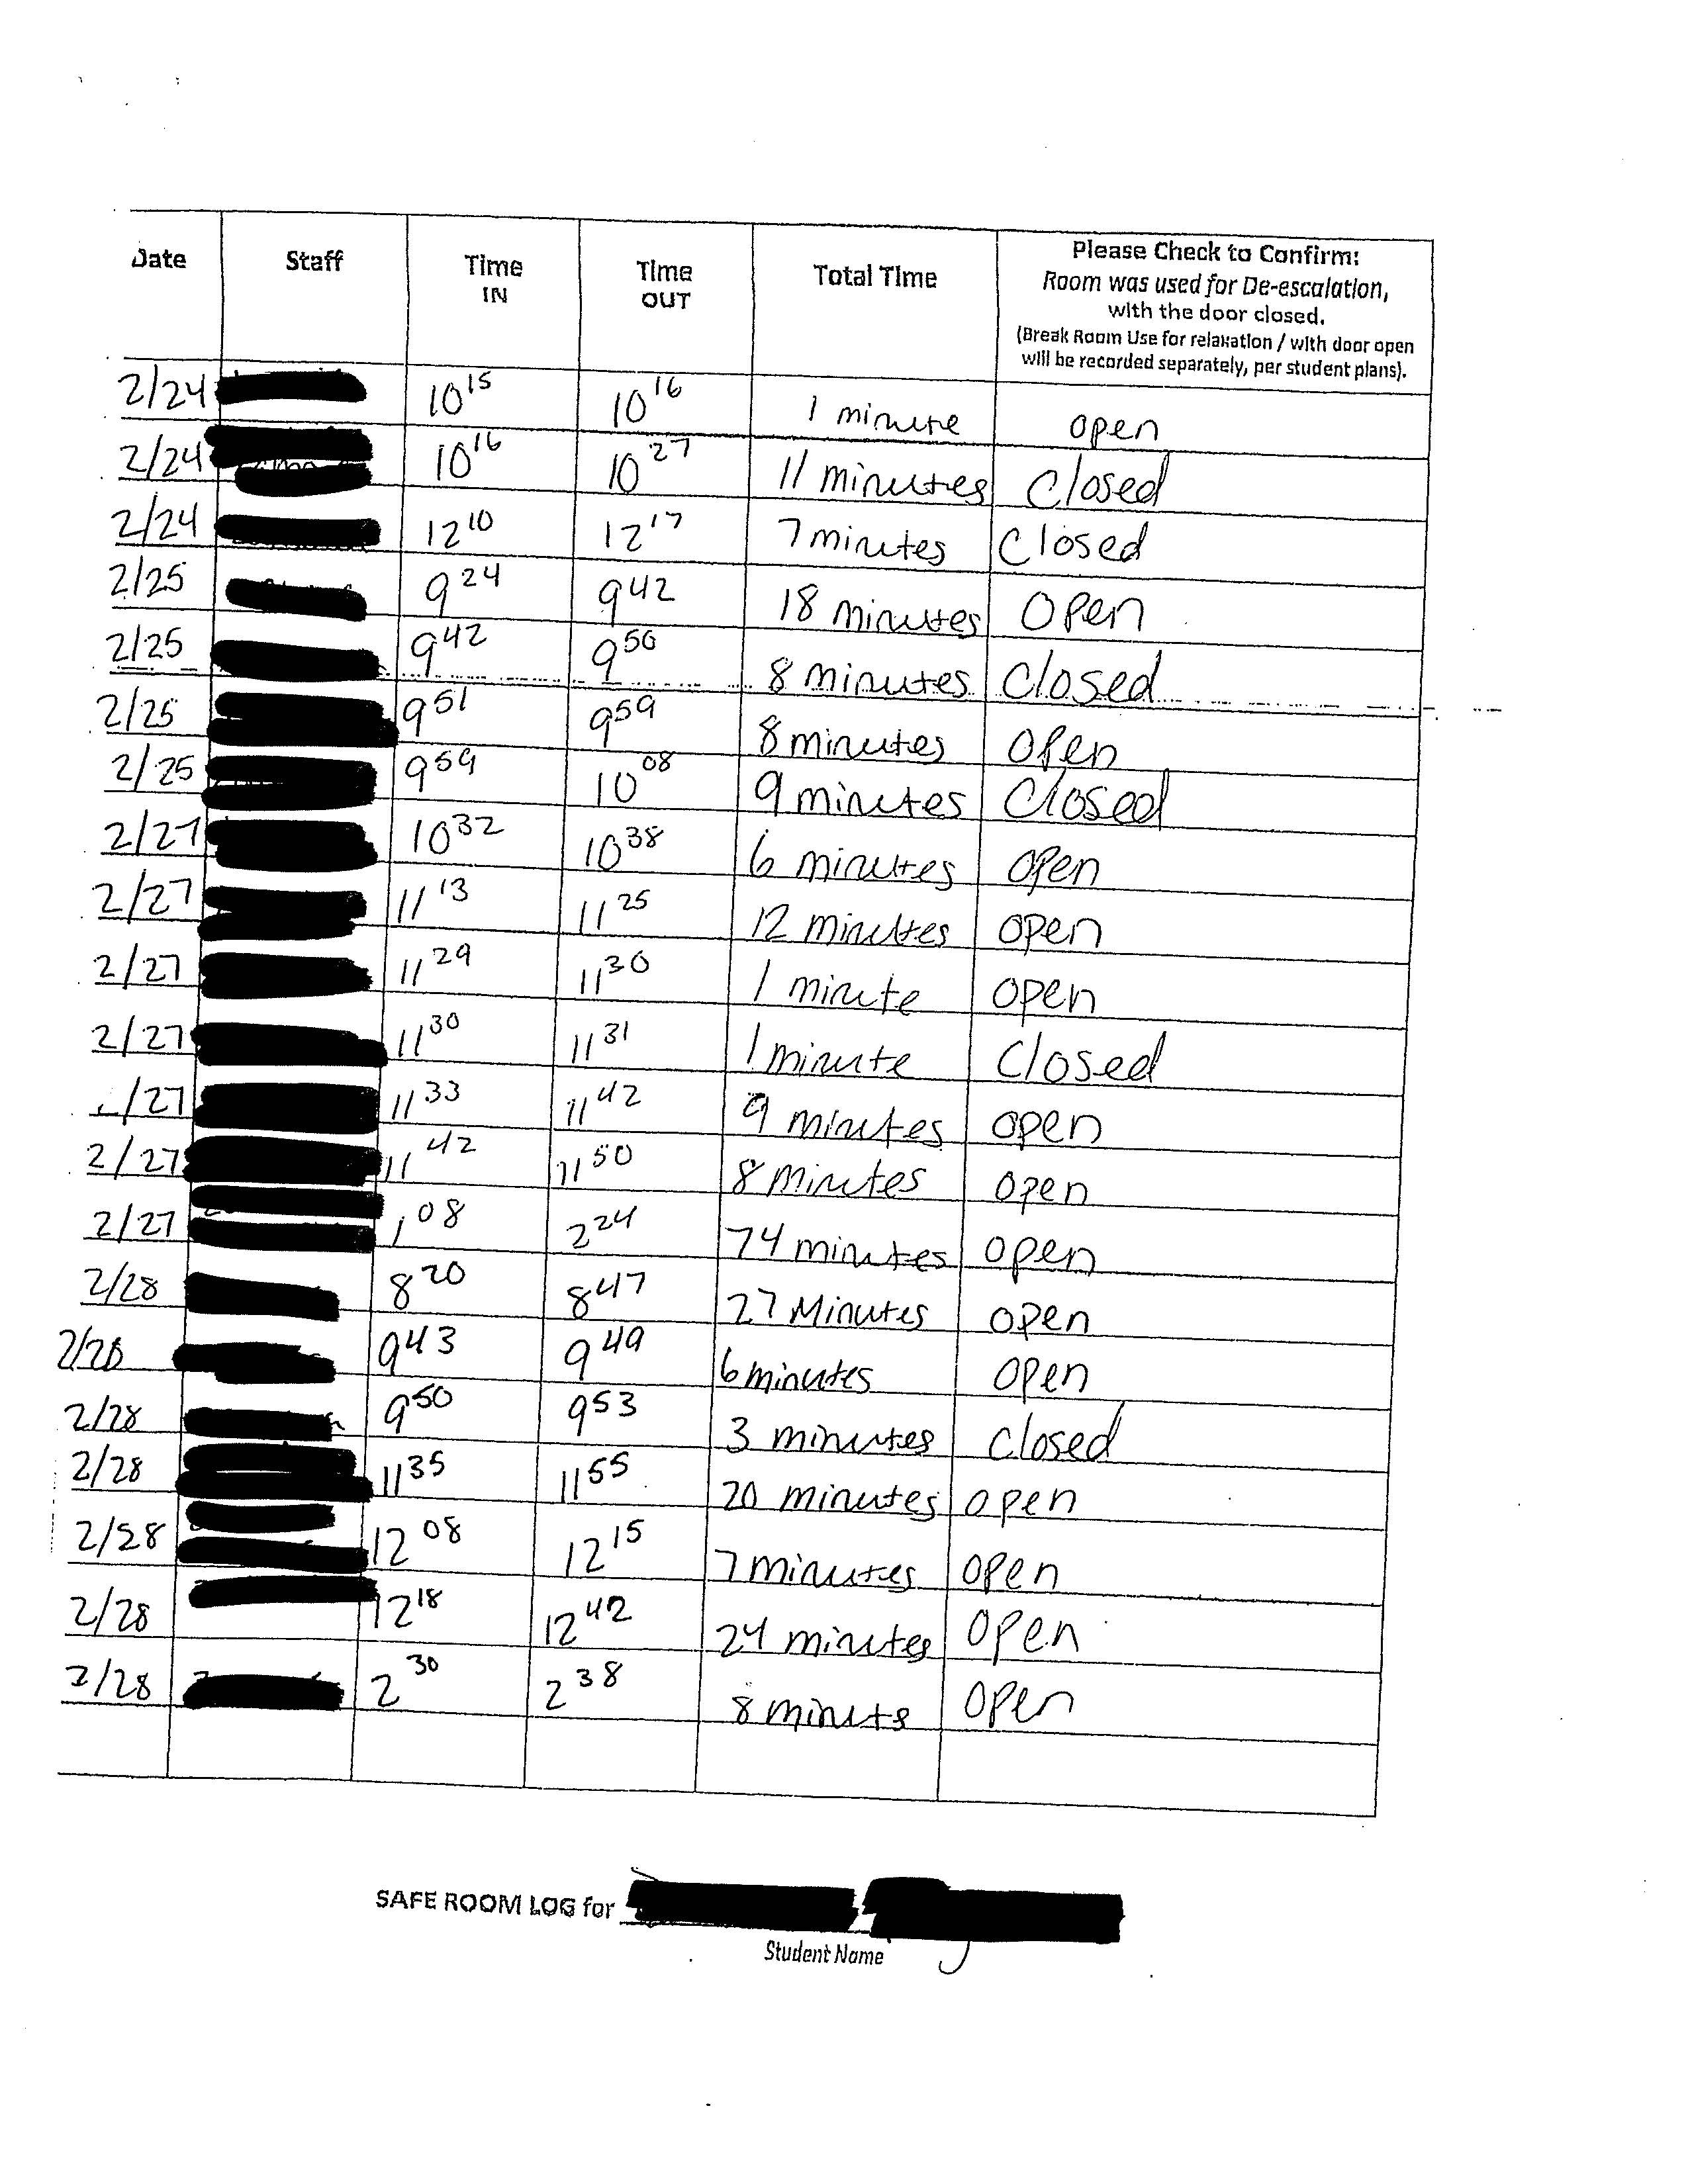 Date Staff Time IN Time OUT Total Time Please Check to Confirm:
Room was used for De-escalation,
with the door closed.
(Break Room Use for relaxation / with door open
will be recorded separately, per student plans).
2/24 10 15 10 16 1 minute open
2/24 10 16 10 27 11 minutes Closed
2/24 12 10 12 17 7 minutes Closed
2/25 9 24 9 42 18 minutes Open
2/25 9 42 9 50 8 minutes Closed
2/25 9 51 9 59 8 minutes Open
2/25 9 59 10 08 9 minutes Closed
2/27 10 32 10 38 6 minutes Open
2/27 11 13 11 25 12 minutes open
2/27 11 29 11 30 1 minute open
2/27 11 30 11 31 1 minute Closed
/27 11 33 11 42 9 minutes open
2/27 11 42 11 50 8 minutes open
2/27 1 08 2 24 74 minutes open
2/28 8 20 8 47 27 Minutes open
2/28 9 43 9 49 6 minutes open
2/28 9 50 9 53 3 minutes Closed
2/28 11 35 11 55 20 minutes open
2/28 12 08 12 15 7 minutes open
2/28 12 18 12 42 24 minutes open
2/28 2 30 2 38 8 minute open
SAFE ROOM LOG for
Student Name